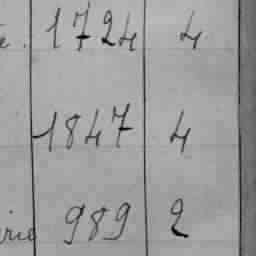 1724 4
1847 4
989 2